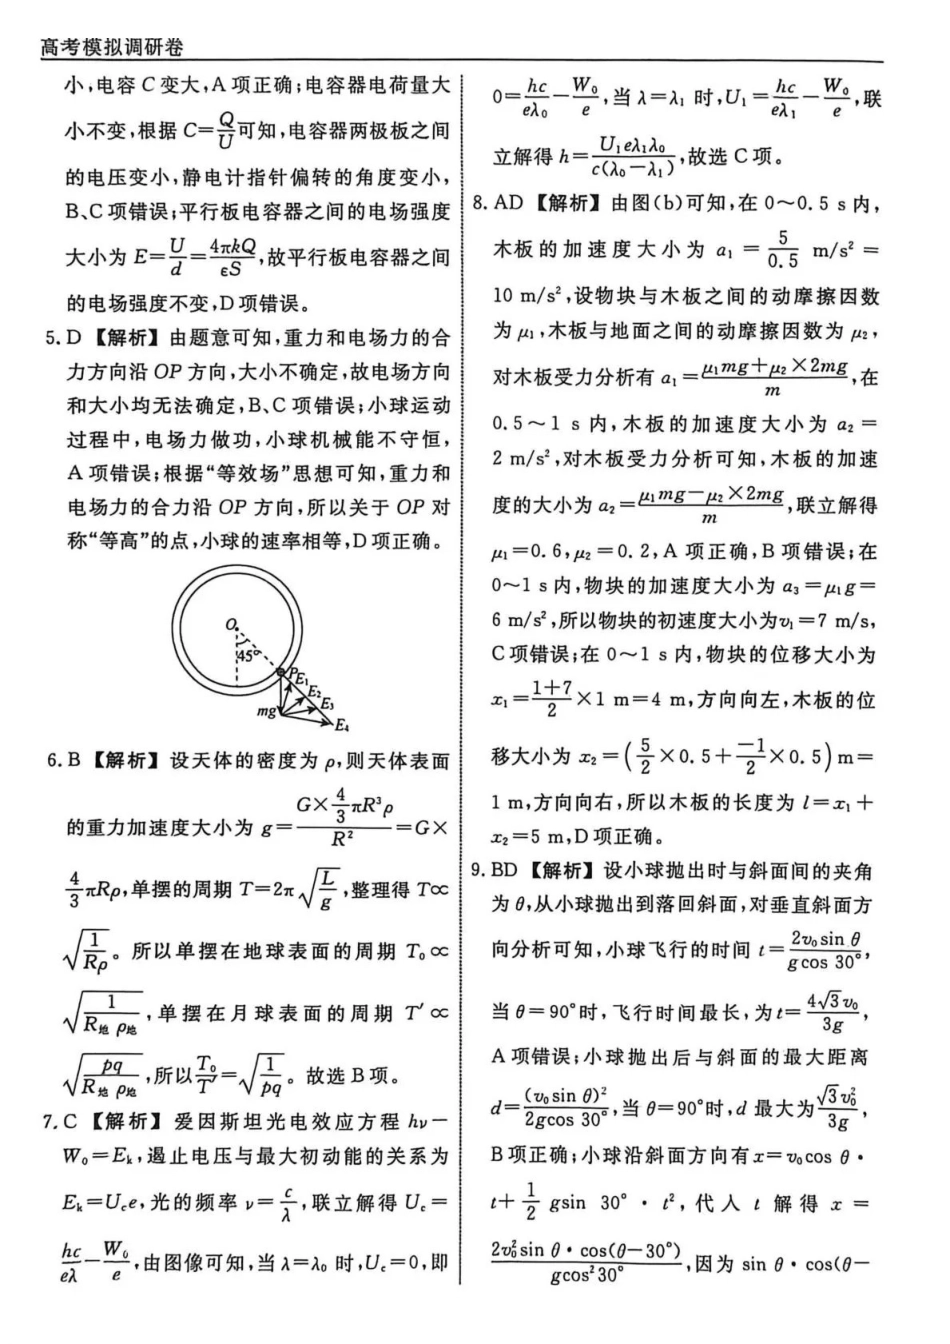 高考模拟调研卷
小,电容 C 变大,A 项正确;电容器电荷量大
小不变,根据 C=Q/U可知,电容器两极板之间
的电压变小,静电计指针偏转的角度变小,
B、C 项错误;平行板电容器之间的电场强度
大小为 E=U/d=4πkQ/εS,故平行板电容器之间
的电场强度不变,D 项错误。
5. D 【解析】由题意可知,重力和电场力的合
力方向沿 OP 方向,大小不确定,故电场方向
和大小均无法确定,B、C 项错误;小球运动
过程中,电场力做功,小球机械能不守恒,
A 项错误;根据“等效场”思想可知,重力和
电场力的合力沿 OP 方向,所以关于 OP 对
称“等高”的点,小球的速率相等,D 项正确。
O
45°
P
E₁
E₂
E₃
mg
E₄
6. B 【解析】设天体的密度为 ρ,则天体表面
的重力加速度大小为 g=(G×4/3πR³ρ)/R²=G×
4/3πRρ,单摆的周期 T=2π√(L/g),整理得 T∝
√(1/Rρ)。所以单摆在地球表面的周期 T₀∝
√(1/R地ρ地),单摆在月球表面的周期 T′∝
√(pq/R地ρ地),所以T₀/T′=√(1/pq)。故选 B 项。
7. C 【解析】爱因斯坦光电效应方程 hν−
W₀=Eₖ,遏止电压与最大初动能的关系为
Eₖ=U꜀e,光的频率 ν=c/λ,联立解得 U꜀=
hc/eλ−W₀/e,由图像可知,当 λ=λ₀ 时,U꜀=0,即
0=hc/eλ₀−W₀/e,当 λ=λ₁ 时,U₁=hc/eλ₁−W₀/e,联
立解得 h=U₁eλ₁λ₀/c(λ₀−λ₁),故选 C 项。
8. AD 【解析】由图(b)可知,在 0～0.5 s 内,
木板的加速度大小为 a₁=5/0.5 m/s²=
10 m/s²,设物块与木板之间的动摩擦因数
为 μ₁,木板与地面之间的动摩擦因数为 μ₂,
对木板受力分析有 a₁=(μ₁mg+μ₂×2mg)/m,在
0.5～1 s 内,木板的加速度大小为 a₂=
2 m/s²,对木板受力分析可知,木板的加速
度的大小为 a₂=(μ₁mg−μ₂×2mg)/m,联立解得
μ₁=0.6,μ₂=0.2,A 项正确,B 项错误;在
0～1 s 内,物块的加速度大小为 a₃=μ₁g=
6 m/s²,所以物块的初速度大小为v₁=7 m/s,
C 项错误;在 0～1 s 内,物块的位移大小为
x₁=(1+7)/2×1 m=4 m,方向向左,木板的位
移大小为 x₂=(5/2×0.5+−1/2×0.5) m=
1 m,方向向右,所以木板的长度为 l=x₁+
x₂=5 m,D 项正确。
9. BD 【解析】设小球抛出时与斜面间的夹角
为 θ,从小球抛出到落回斜面,对垂直斜面方
向分析可知,小球飞行的时间 t=2v₀sin θ/gcos 30°,
当 θ=90°时,飞行时间最长,为t=4√3v₀/3g,
A 项错误;小球抛出后与斜面的最大距离
d=(v₀sin θ)²/2gcos 30°,当 θ=90°时,d 最大为√3v₀²/3g,
B 项正确;小球沿斜面方向有 x=v₀cos θ·
t+1/2 gsin 30°·t²,代人 t 解得 x=
2v₀²sin θ·cos(θ−30°)/gcos²30°,因为 sin θ·cos(θ−